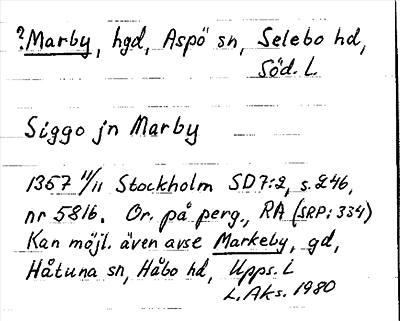 ?Marby, hgd, Aspö sn, Selebo hd,
Söd. L.
Siggo jn Marby
1357 11/11 Stockholm SD7:2, s. 246,
nr 5816. Or. på perg., RA (SRP: 334)
Kan möjl. även avse Markeby, gd,
Håtuna sn, Håbo hd, Upps. L
L. Aks. 1980